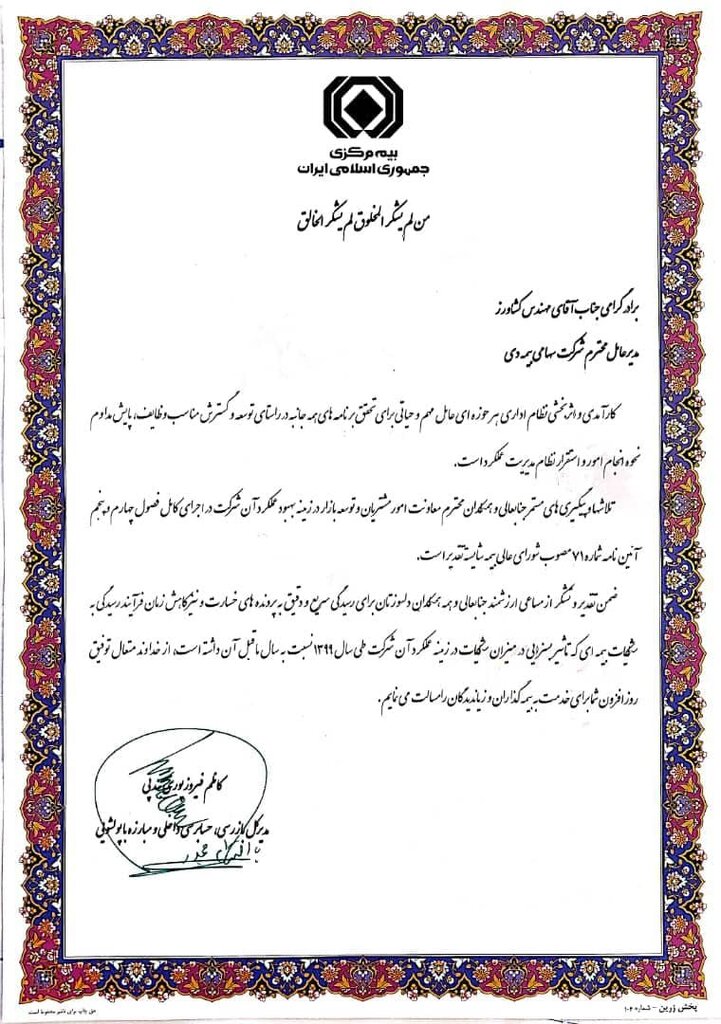 بیمه مرکزی
جمهوری اسلامی ایران
من لم یشکر المخلوق لم یشکر الخالق
برادر گرامی جناب آقای مهندس کشاورز
مدیرعامل محترم شرکت سهامی بیمه دی
کارآمدی و اثربخشی نظام اداری هر حوزه ای عامل مهم و حیاتی برای تحقق برنامه های همه جانبه در راستای توسعه و گسترش مناسب وظایف، پایش مداوم
نحوه انجام امور و استقرار نظام مدیریت عملکرد است.
تلاشها و پیگیری های مستمر جنابعالی و همکاران محترم معاونت امور مشتریان و توسعه بازار در زمینه بهبود عملکرد آن شرکت در اجرای کامل فصول چهارم و پنجم
آئین نامه شماره ۷۱ مصوب شورای عالی بیمه شایسته تقدیر است.
ضمن تقدیر و تشکر از مساعی ارزشمند جنابعالی و همه همکاران دلسوزتان برای رسیدگی سریع و دقیق به پرونده های خسارت و نیز کاهش زمان فرآیند رسیدگی به
شکایات بیمه ای که تاثیر بسزایی در میزان شکایات در زمینه عملکرد آن شرکت طی سال ۱۳۹۹ نسبت به سال ماقبل آن داشته است، از خداوند متعال توفیق
روز افزون شما برای خدمت به بیمه گذاران و زیاندیدگان را مسالت می نمایم.
کاظم فیروز
مدیرکل بازرسی، حسابرسی داخلی و مبارزه با پولشویی
پخش زرین - شماره ۱۰۲
حق چاپ برای ناشر محفوظ است